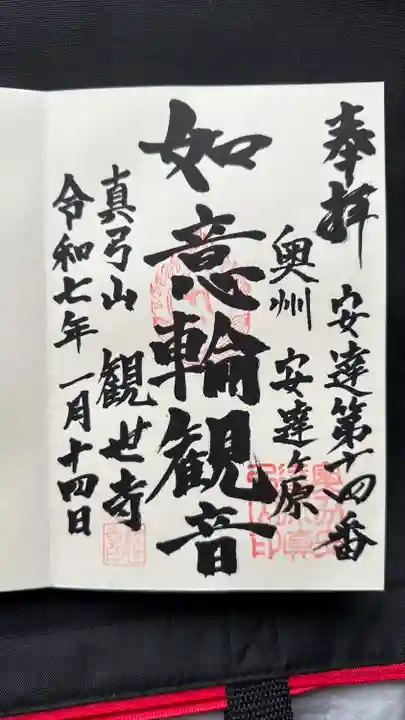 奉拝 安達第十四番
奥州 安達ヶ原
如意輪観音
真弓山 観世寺
令和七年 一月十四日